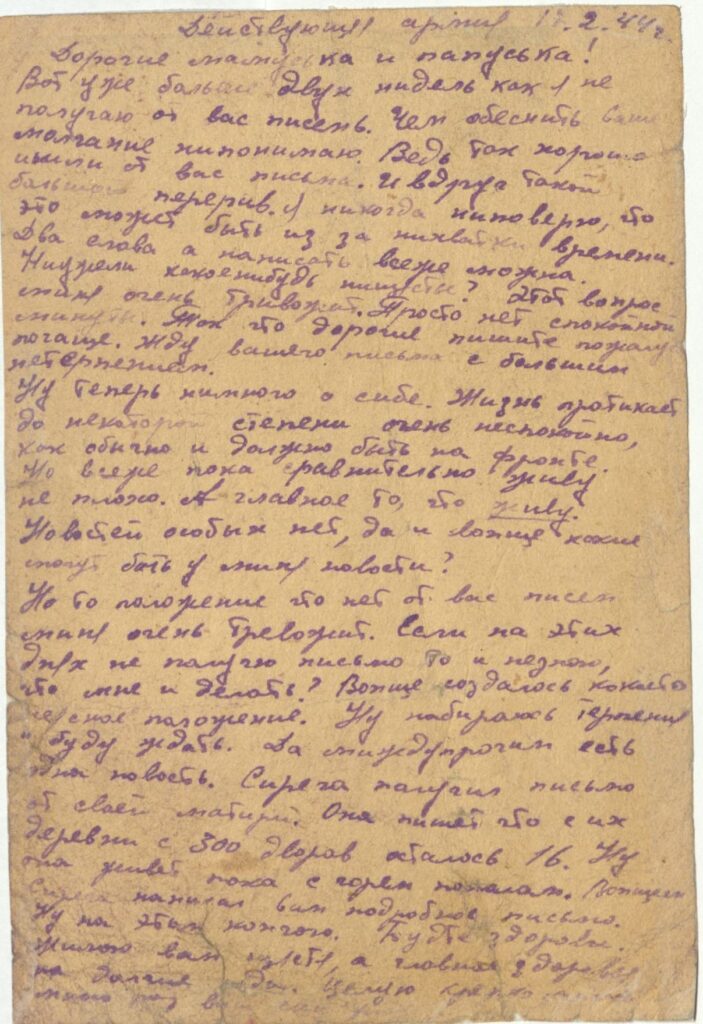 Действующия армия 2.44г.
Дорогие мамуська и папуська!
Вот уже больше двух нидель как я не
получаю от вас писень. Чем обеснить ваше
молчание нипонимаю. Ведь так хорошо
ишли от вас письма. И вдруг такой
большой перерив. Я никогда ниповерю, что
это может быть из за нихватки времени.
Два слова а написать всеже можна.
Нижели какоенибудь нищстье? Этот вопрос
миня очень тривожит. Просто нет спокойной
минуты. Так что дорогие пишите пожалу
почаще. Жду вашего письма с большим
нетерпением.
Ну теперь нимного о сибе. Жизнь протикает
до некоторой степени очень неспокойно,
как обычно и должно быть на фронте.
Но всеже пока сравнительно живу
не плохо. А главное то, что живу.
Новостей особых нет, да и вопще какие
могут быть у миня новости?
Но то положение что нет от вас писем
миня очень тревожит. Если на этих
днях не получю письмо то и незнаю,
что мне и делать? Вопще создалось какоето
неясное положение. Ну набираюсь терпения
и буду ждать. Да миждупрочим есть
одна новость. Сиреча получил письмо
от своей матири. Она пишет что с их
деревни с 300 дворов осталось 16. Ну
она живет пока с горем пополам. Вопщем
Сиреча написал вам подробное письмо.
Ну на этом кончаю. Будте здоровы.
Жилаю вам а главное здоровья
на долгие года. Целую крепко
много раз ваш